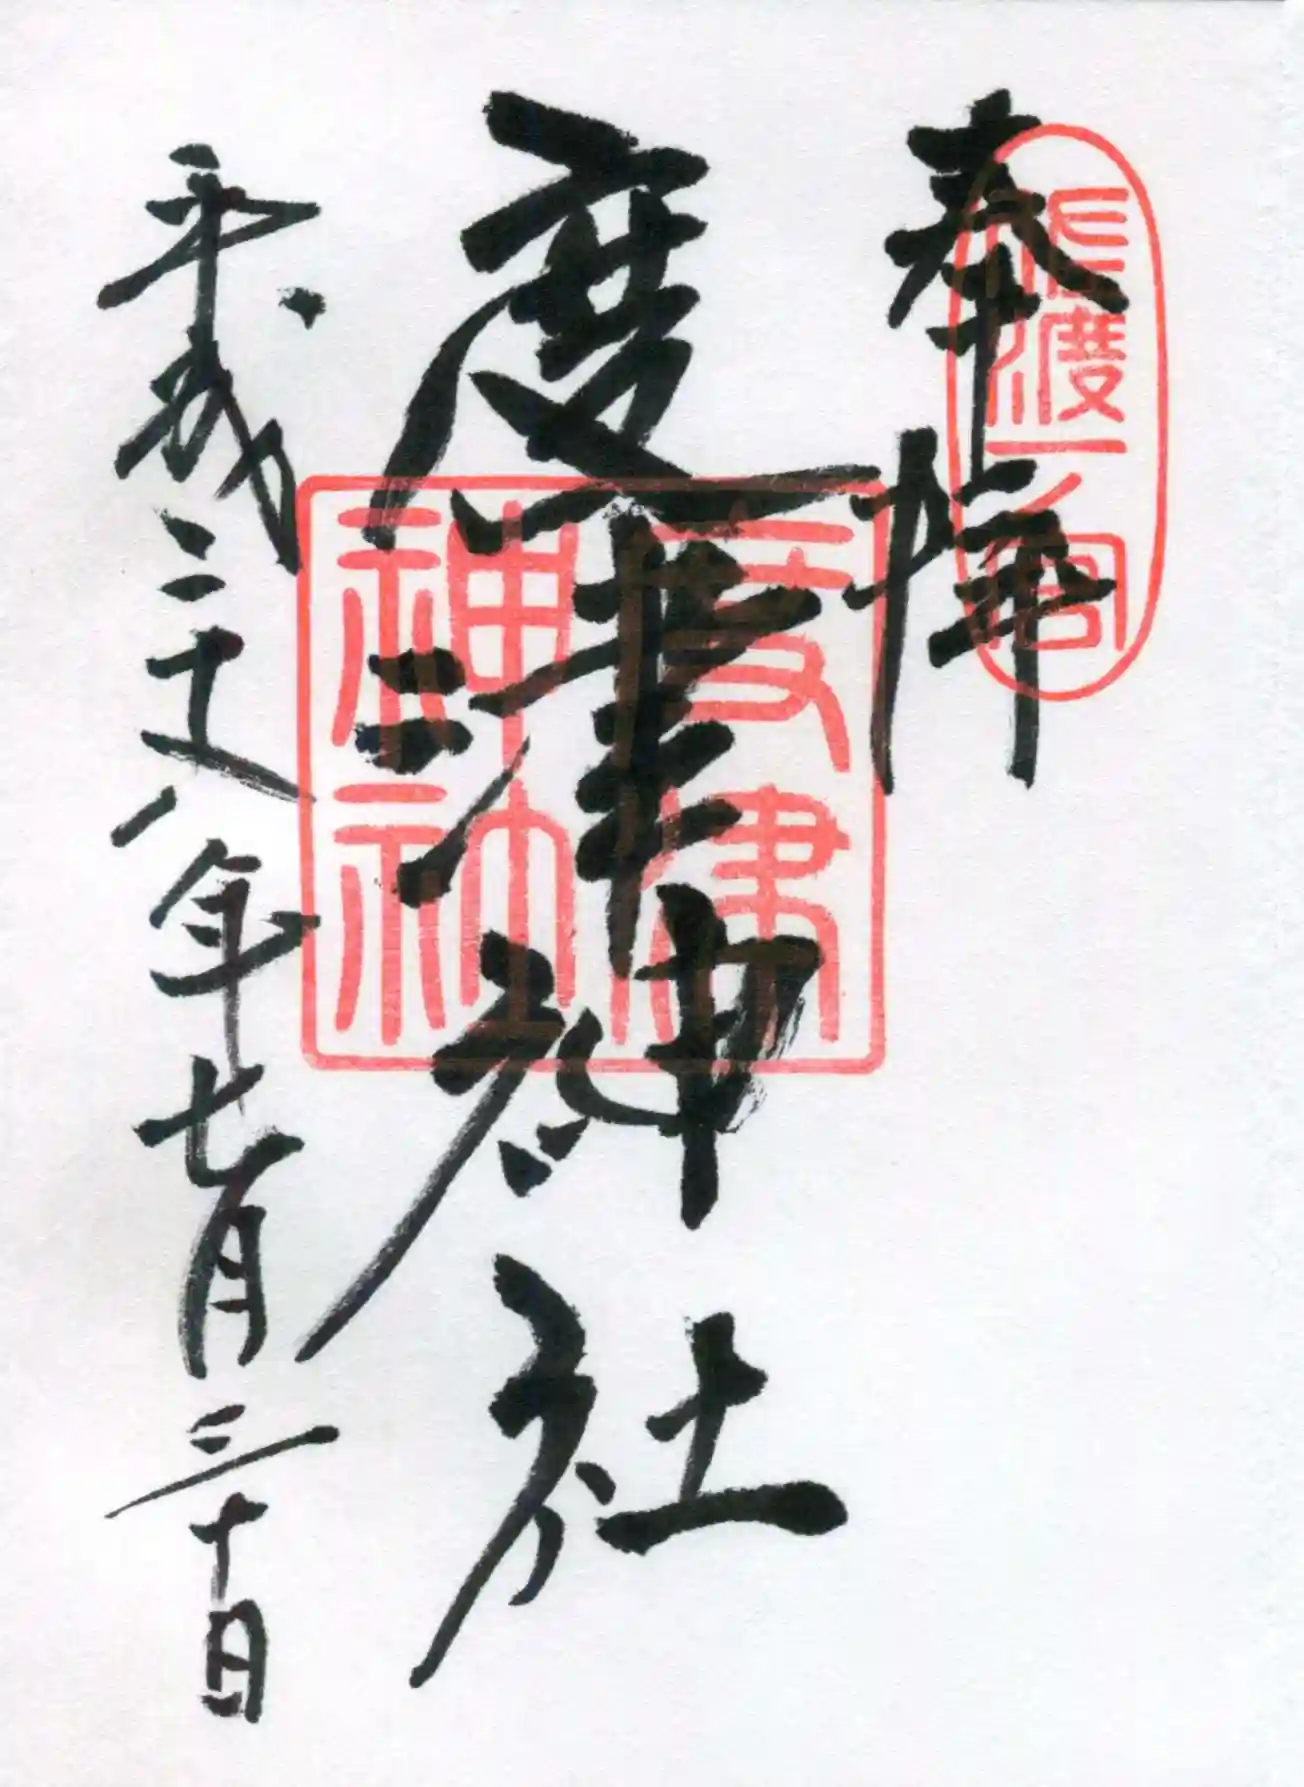 奉拝
佐渡一ノ宮
度津神社
度津神社
平成二十八年七月三十日